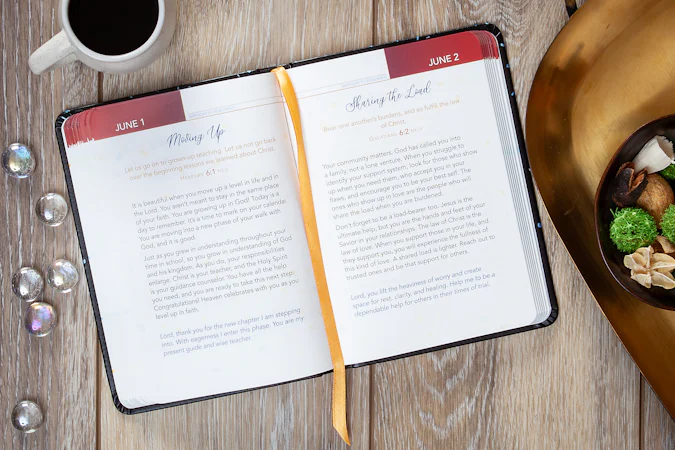 JUNE 1
Moving Up
Let us go on to grown-up teaching. Let us not go back
over the beginning lessons we learned about Christ.
6:1
It is beautiful when you move up a level in life and in
the Lord. You aren't meant to stay in the same place
of your faith. You are growing up in God! Today is a
day to remember. It's a time to mark on your calendar.
You are moving into a new phase of your walk with
God, and it is good.
Just as you grew in understanding throughout your
time in school, so you grow in understanding of God
and his kingdom. As you do, your responsibilities
enlarge. Christ is your teacher, and the Holy Spirit
is your guidance counselor. You have all the help
you need, and you are ready to take this next step.
Congratulations! Heaven celebrates with you as you
level up in faith.
Lord, thank you for the new chapter I am stepping
into. With eagerness I enter this phase. You are my
present guide and wise teacher.
JUNE 2
Sharing the Load
Bear one another's burdens, and so fulfill the law
of Christ.
6:2
Your community matters. God has called you into
a family, not a lone venture. When you struggle to
identify your support system, look for those who show
up when you need them, who accept you in your
flaws, and encourage you to be your best self. The
ones who show up in love are the people who will
share the load when you are burdened.
Don't forget to be a load-bearer too. Jesus is the
ultimate help, but you are the hands and feet of your
Savior in your relationships. The law of Christ is the
law of love. When you support those in your life, and
they support you, you will experience the fullness of
this kind of love. A shared load is lighter. Reach out to
trusted ones and be that support for others.
Lord, you lift the heaviness of worry and create
space for rest, clarity, and healing. Help me to be a
dependable help for others in their times of trial.